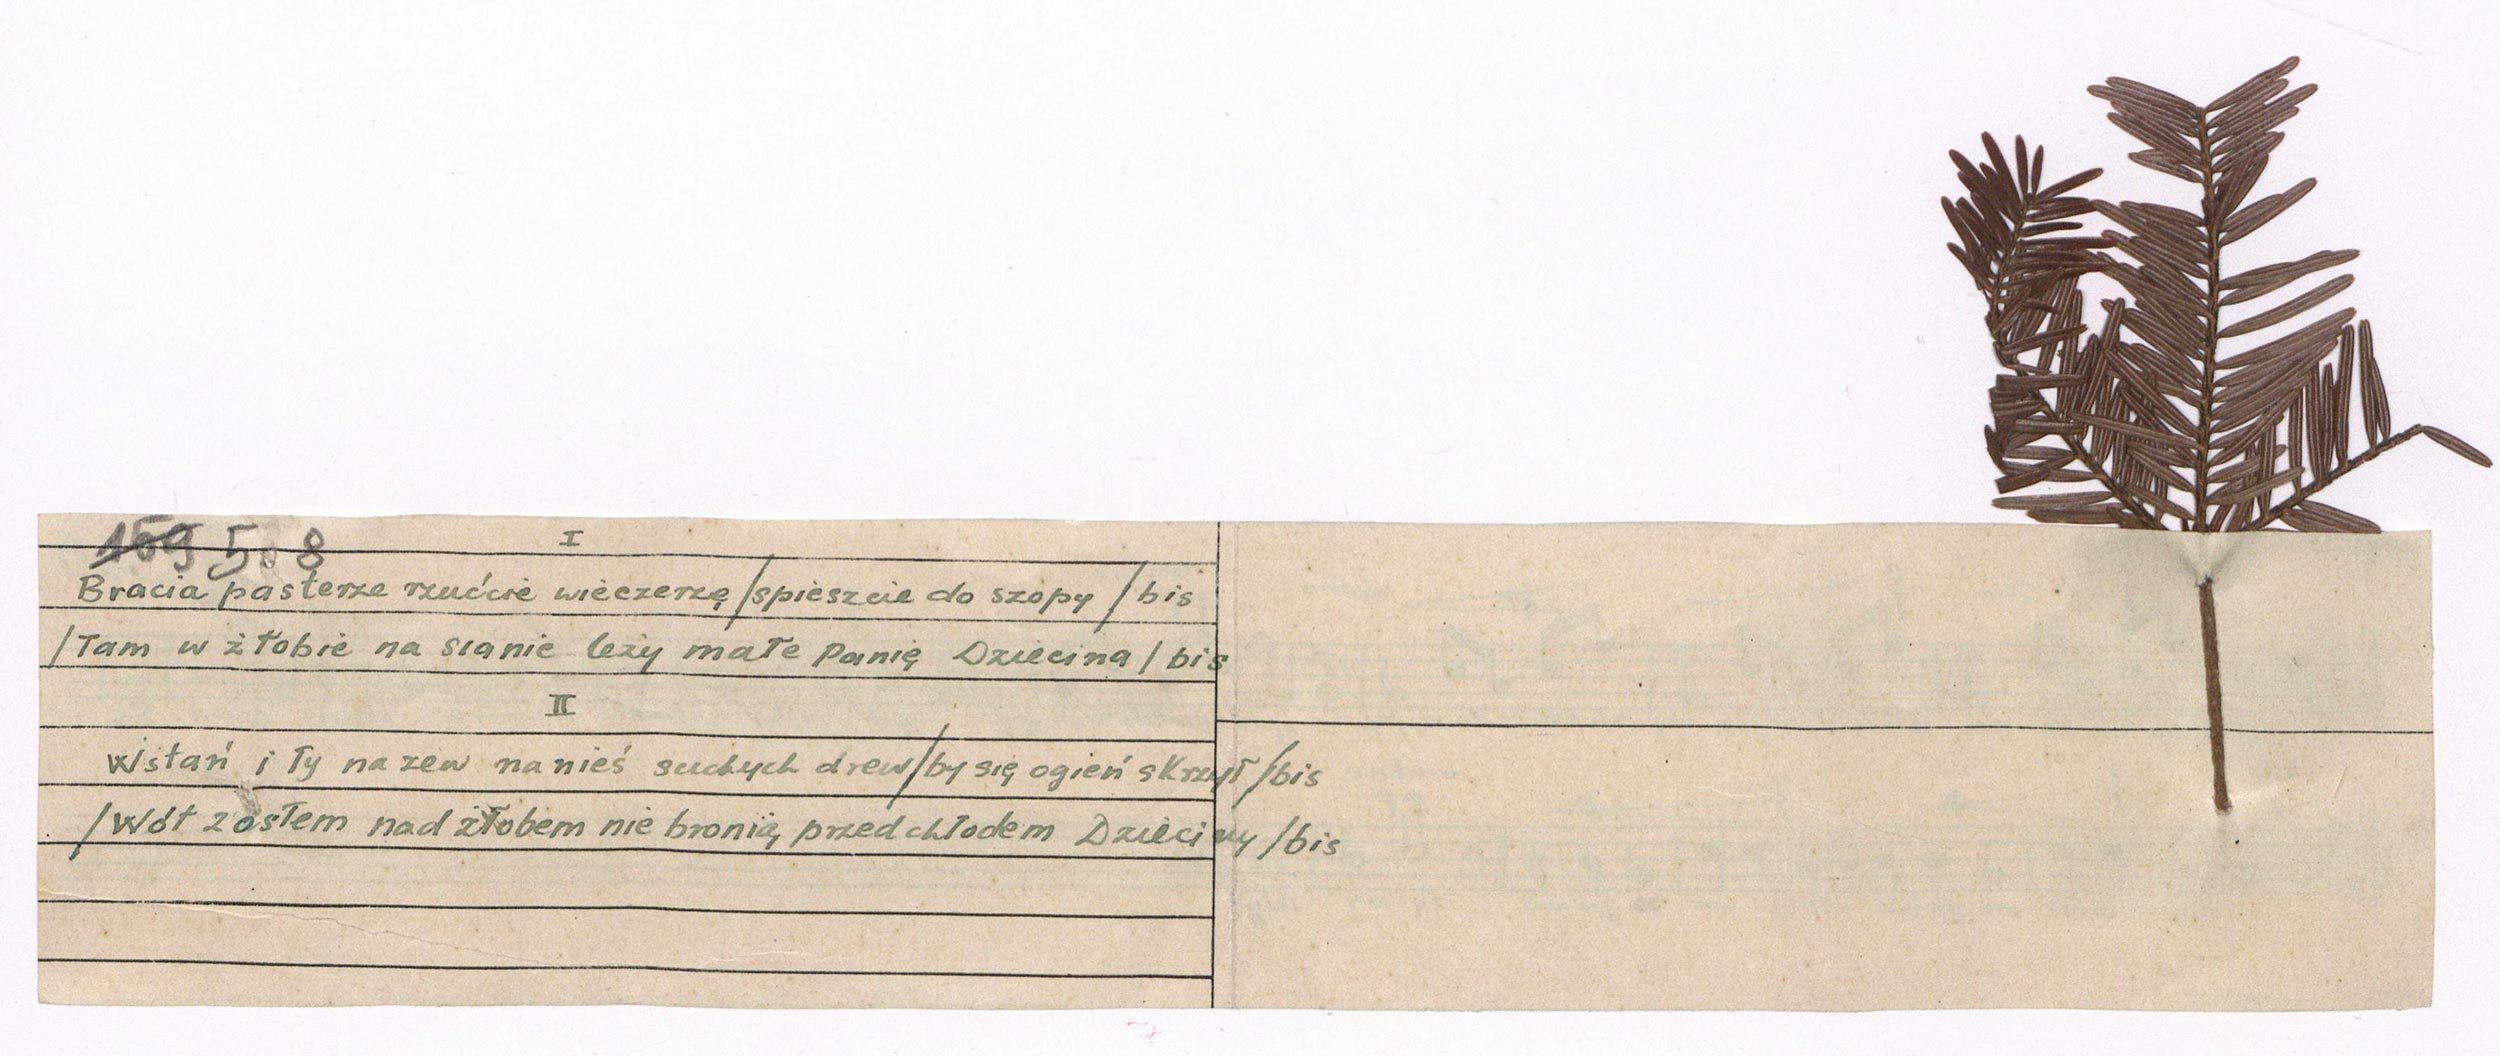 169 5 8
I
Bracia pasterze rzućcie wieczerzę / spieszcie do szopy / bis
/ Tam w żłobie na sianie leży małe Panię Dziecina / bis
II
Wstań i Ty na zew nanieś suchych drew / by się ogień skrzył / bis
/ Wół z osłem nad żłobem nie bronią przed chłodem Dzieciny / bis